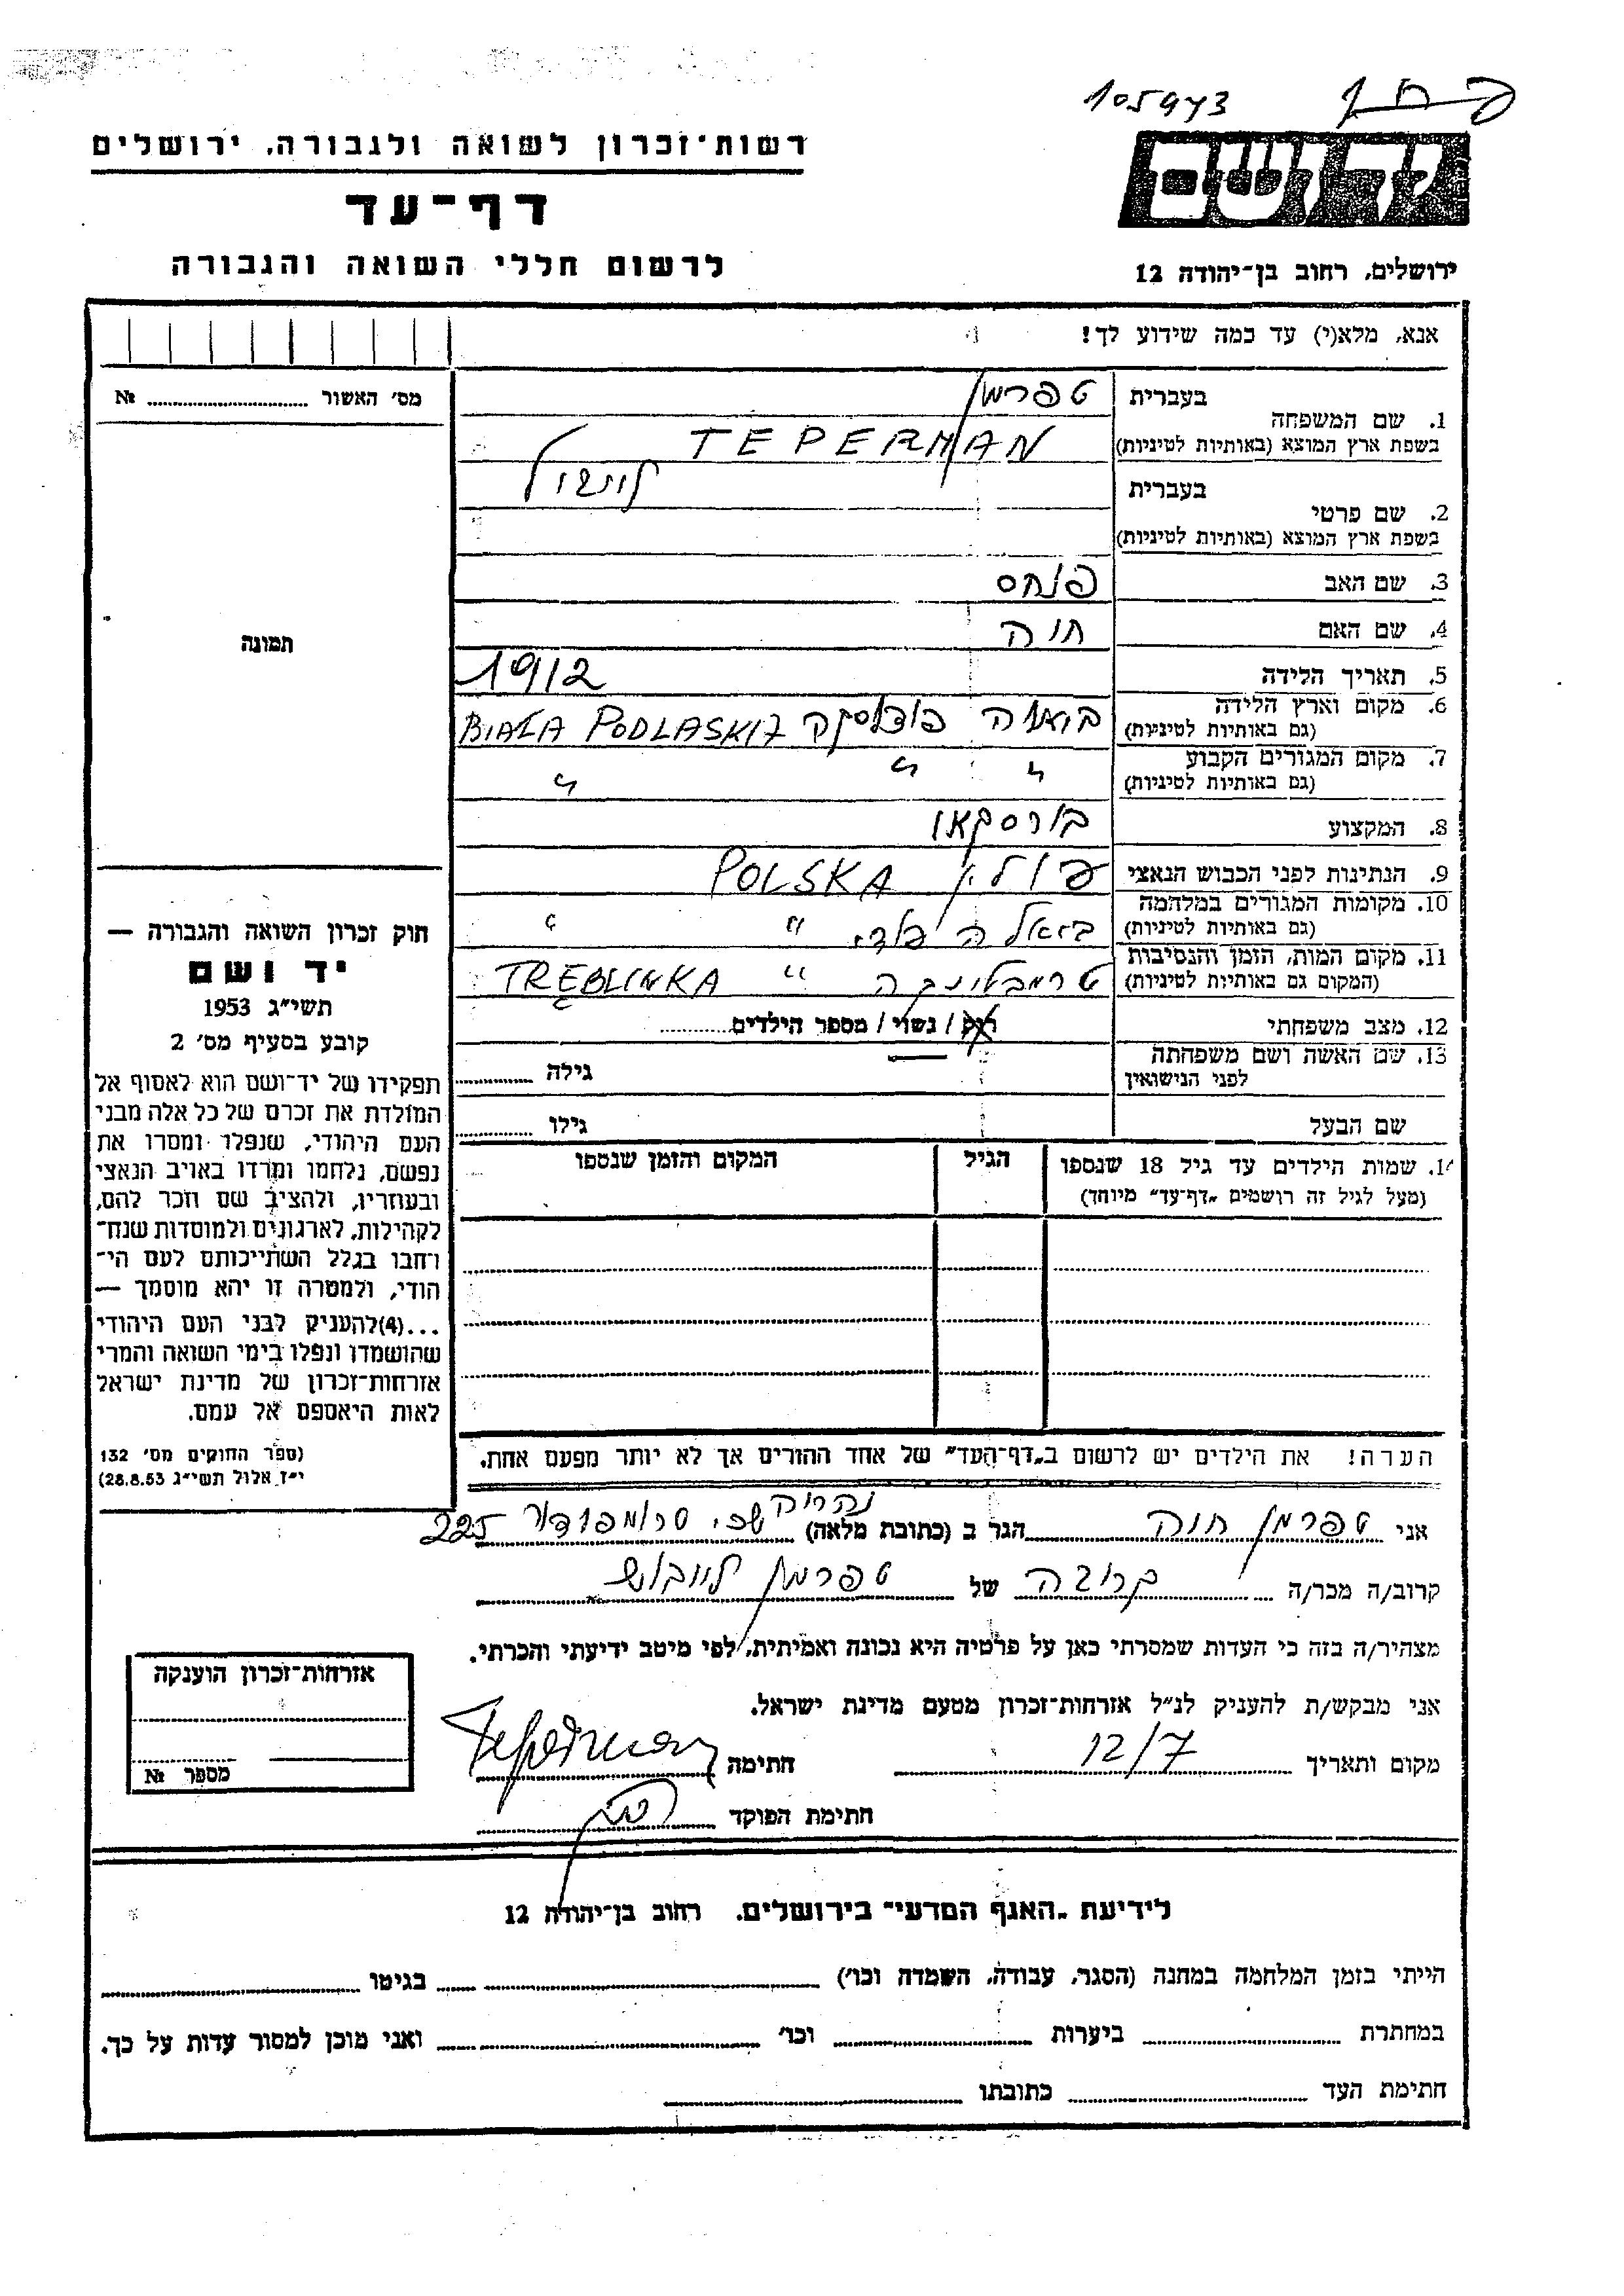 105973
רשות-זכרון לשואה ולגבורה, ירושלים
דף-עד
לרשום חללי השואה והגבורה
יד ושם
ירושלים, רחוב בן-יהודה 12
אנא, מלא(י) עד כמה שידוע לך!
מס' האשור ........ №
תמונה
1. שם המשפחה
בעברית טפרמן
בשפת ארץ המוצא (באותיות לטיניות) TEPERMAN
2. שם פרטי
בעברית
בשפת ארץ המוצא (באותיות לטיניות)
3. שם האב פנחס
4. שם האם חוה
5. תאריך הלידה 1912
6. מקום וארץ הלידה
(גם באותיות לטיניות) ביאלה פודלסקה BIAŁA PODLASKIJ
7. מקום המגורים הקבוע
(גם באותיות לטיניות) " " "
8. המקצוע בורסקאי
9. הנתינות לפני הכבוש הנאצי פולין POLSKA
10. מקומות המגורים במלחמה
(גם באותיות לטיניות) ביאלה פוד. " "
11. מקום המות, הזמן והנסיבות
(המקום גם באותיות לטיניות) טרמבלינקה " TRĘBLINKA
12. מצב משפחתי רוק / נשוי / מספר הילדים ........
13. שם האשה ושם משפחתה
לפני הנישואין גילה ........
שם הבעל גילו ........
14. שמות הילדים עד גיל 18 שנספו
(מעל לגיל זה רושמים "דף-עד" מיוחד)
הגיל
המקום והזמן שנספו
הערה! את הילדים יש לרשום ב"דף-העד" של אחד ההורים אך לא יותר מפעם אחת.
חוק זכרון השואה והגבורה —
יד ושם
תשי"ג 1953
קובע בסעיף מס' 2
תפקידו של יד-ושם הוא לאסוף אל
המולדת את זכרם של כל אלה מבני
העם היהודי, שנפלו ומסרו את
נפשם, נלחמו ומרדו באויב הנאצי
ובעוזריו, ולהציב שם וזכר להם,
לקהילות, לארגונים ולמוסדות שנח-
רחבו בגלל השתייכותם לעם הי-
הודי, ולמטרה זו יהא מוסמך —
...(4) להעניק לבני העם היהודי
שהושמדו ונפלו בימי השואה והמרי
אזרחות-זכרון של מדינת ישראל
לאות היאספם אל עמם.
(ספר החוקים מס' 132
י"ז אלול תשי"ג 28.8.53)
אני טפרמן חוה הגר ב (כתובת מלאה) שכ. 225
קרוב/ה מכר/ה קרובה של טפרמן לייבוש
מצהיר/ה בזה כי העדות שמסרתי כאן על פרטיה היא נכונה ואמיתית, לפי מיטב ידיעתי והכרתי.
אני מבקש/ת להעניק לנ"ל אזרחות-זכרון מטעם מדינת ישראל.
מקום ותאריך 12/7 חתימה Teperman
חתימת הפוקד
אזרחות-זכרון הוענקה
מספר №
לידיעת "האגף המדעי" בירושלים. רחוב בן-יהודה 12
הייתי בזמן המלחמה במחנה (הסגר, עבודה, השמדה וכו') ........ בגיטו ........
במחתרת ........ ביערות ........ וכו' ........ ואני מוכן למסור עדות על כך.
חתימת העד ........ כתובתו ........